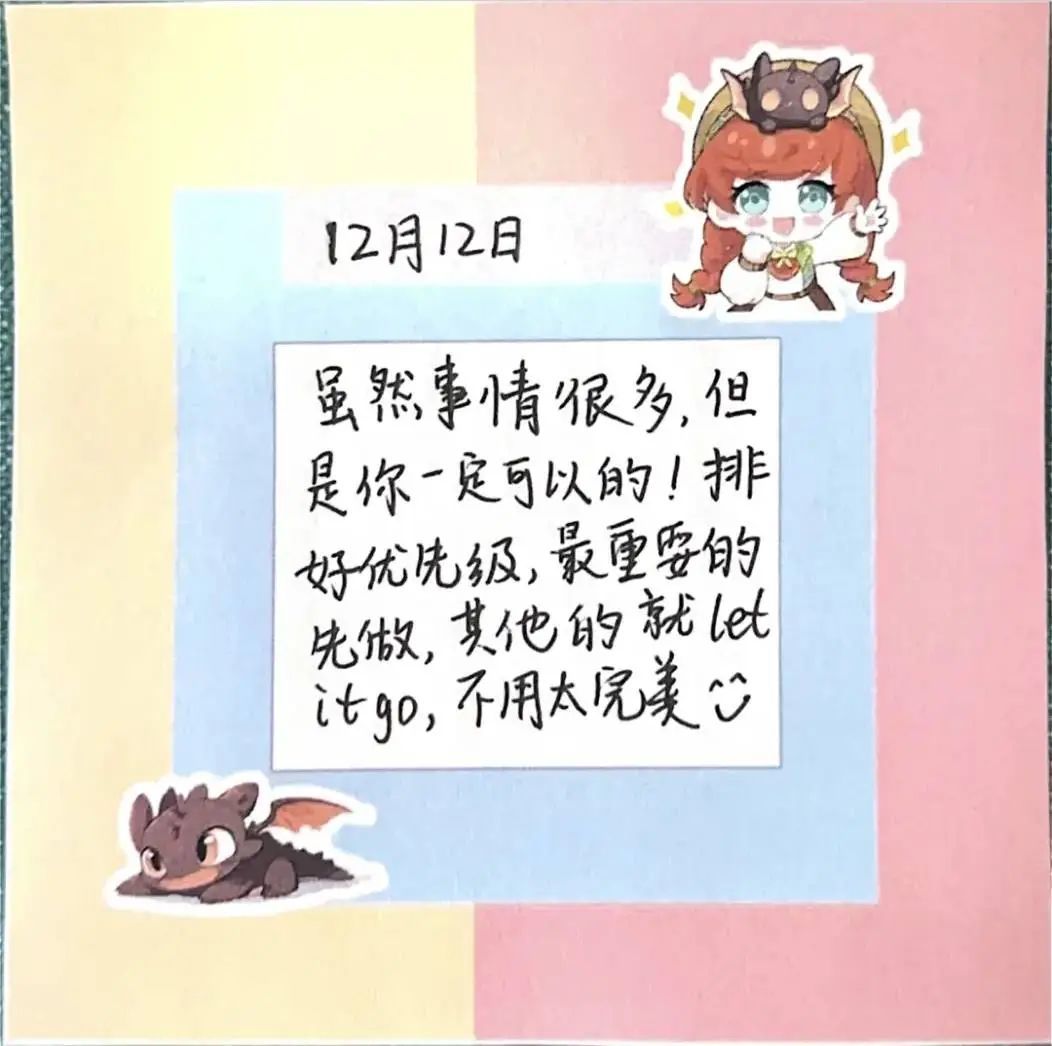 12月12日
虽然事情很多,但
是你一定可以的!排
好优先级,最重要的
先做,其他的就let
it go,不用太完美